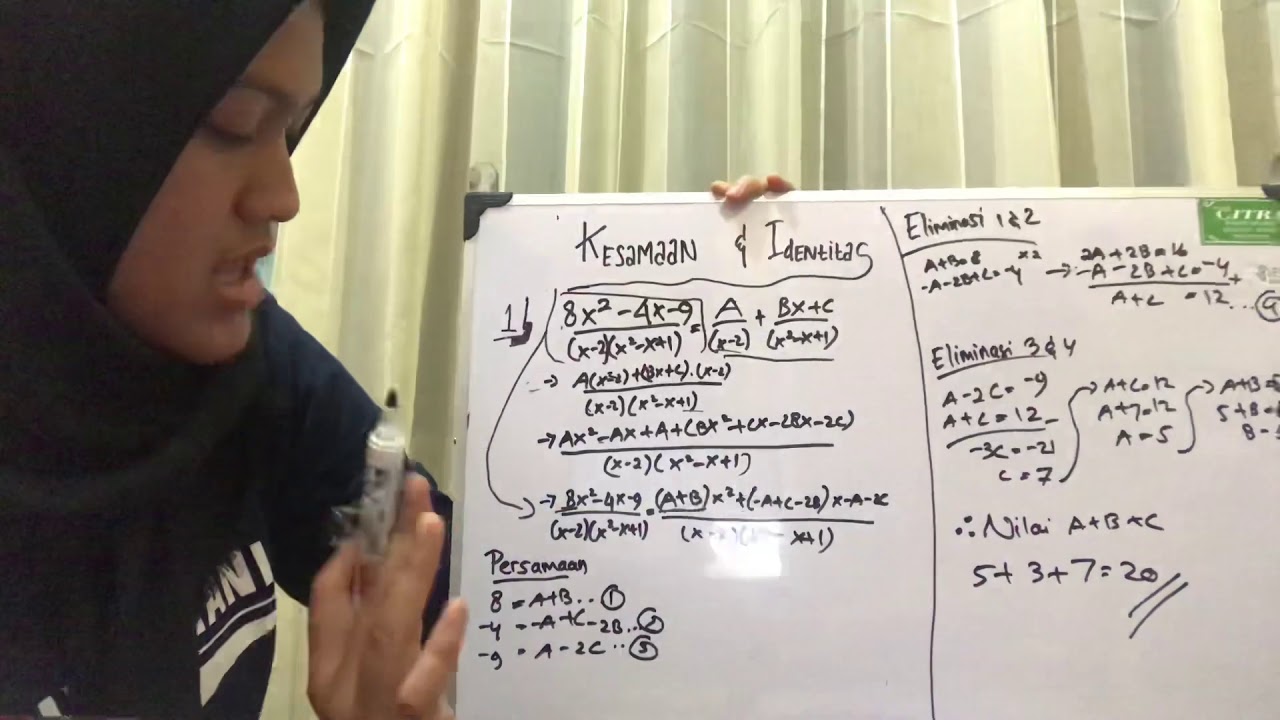 KESAMAAN & IDENTITAS
1. 8x²-4x-9 / (x-2)(x²-x+1) = A / (x-2) + Bx+C / (x²-x+1)
(x-2)(x²-x+1)
→ Ax²-Ax+A+(Bx²+Cx-2Bx-2C) / (x-2)(x²-x+1)
→ 8x²-4x-9 / (x-2)(x²-x+1) = (A+B)x²+(-A+C-2B)x-A-2C
Persamaan
8 = A+B.. ①
-4 = -A+C-2B.. ②
-9 = A-2C.. ③
Eliminasi 1 & 2
A+B=8 x2
-A-2B+C=-4
→ 2A+2B=16
-A-2B+C=-4 +
A+C = 12 ... ④
Eliminasi 3 & 4
A-2C=-9
A+C=12 -
-3C=-21
C=7
→ A+C=12
A+7=12
A=5
→ A+B=
5+B=
B=
∴ Nilai A+B+C
5+3+7=20
CITRA
ANT